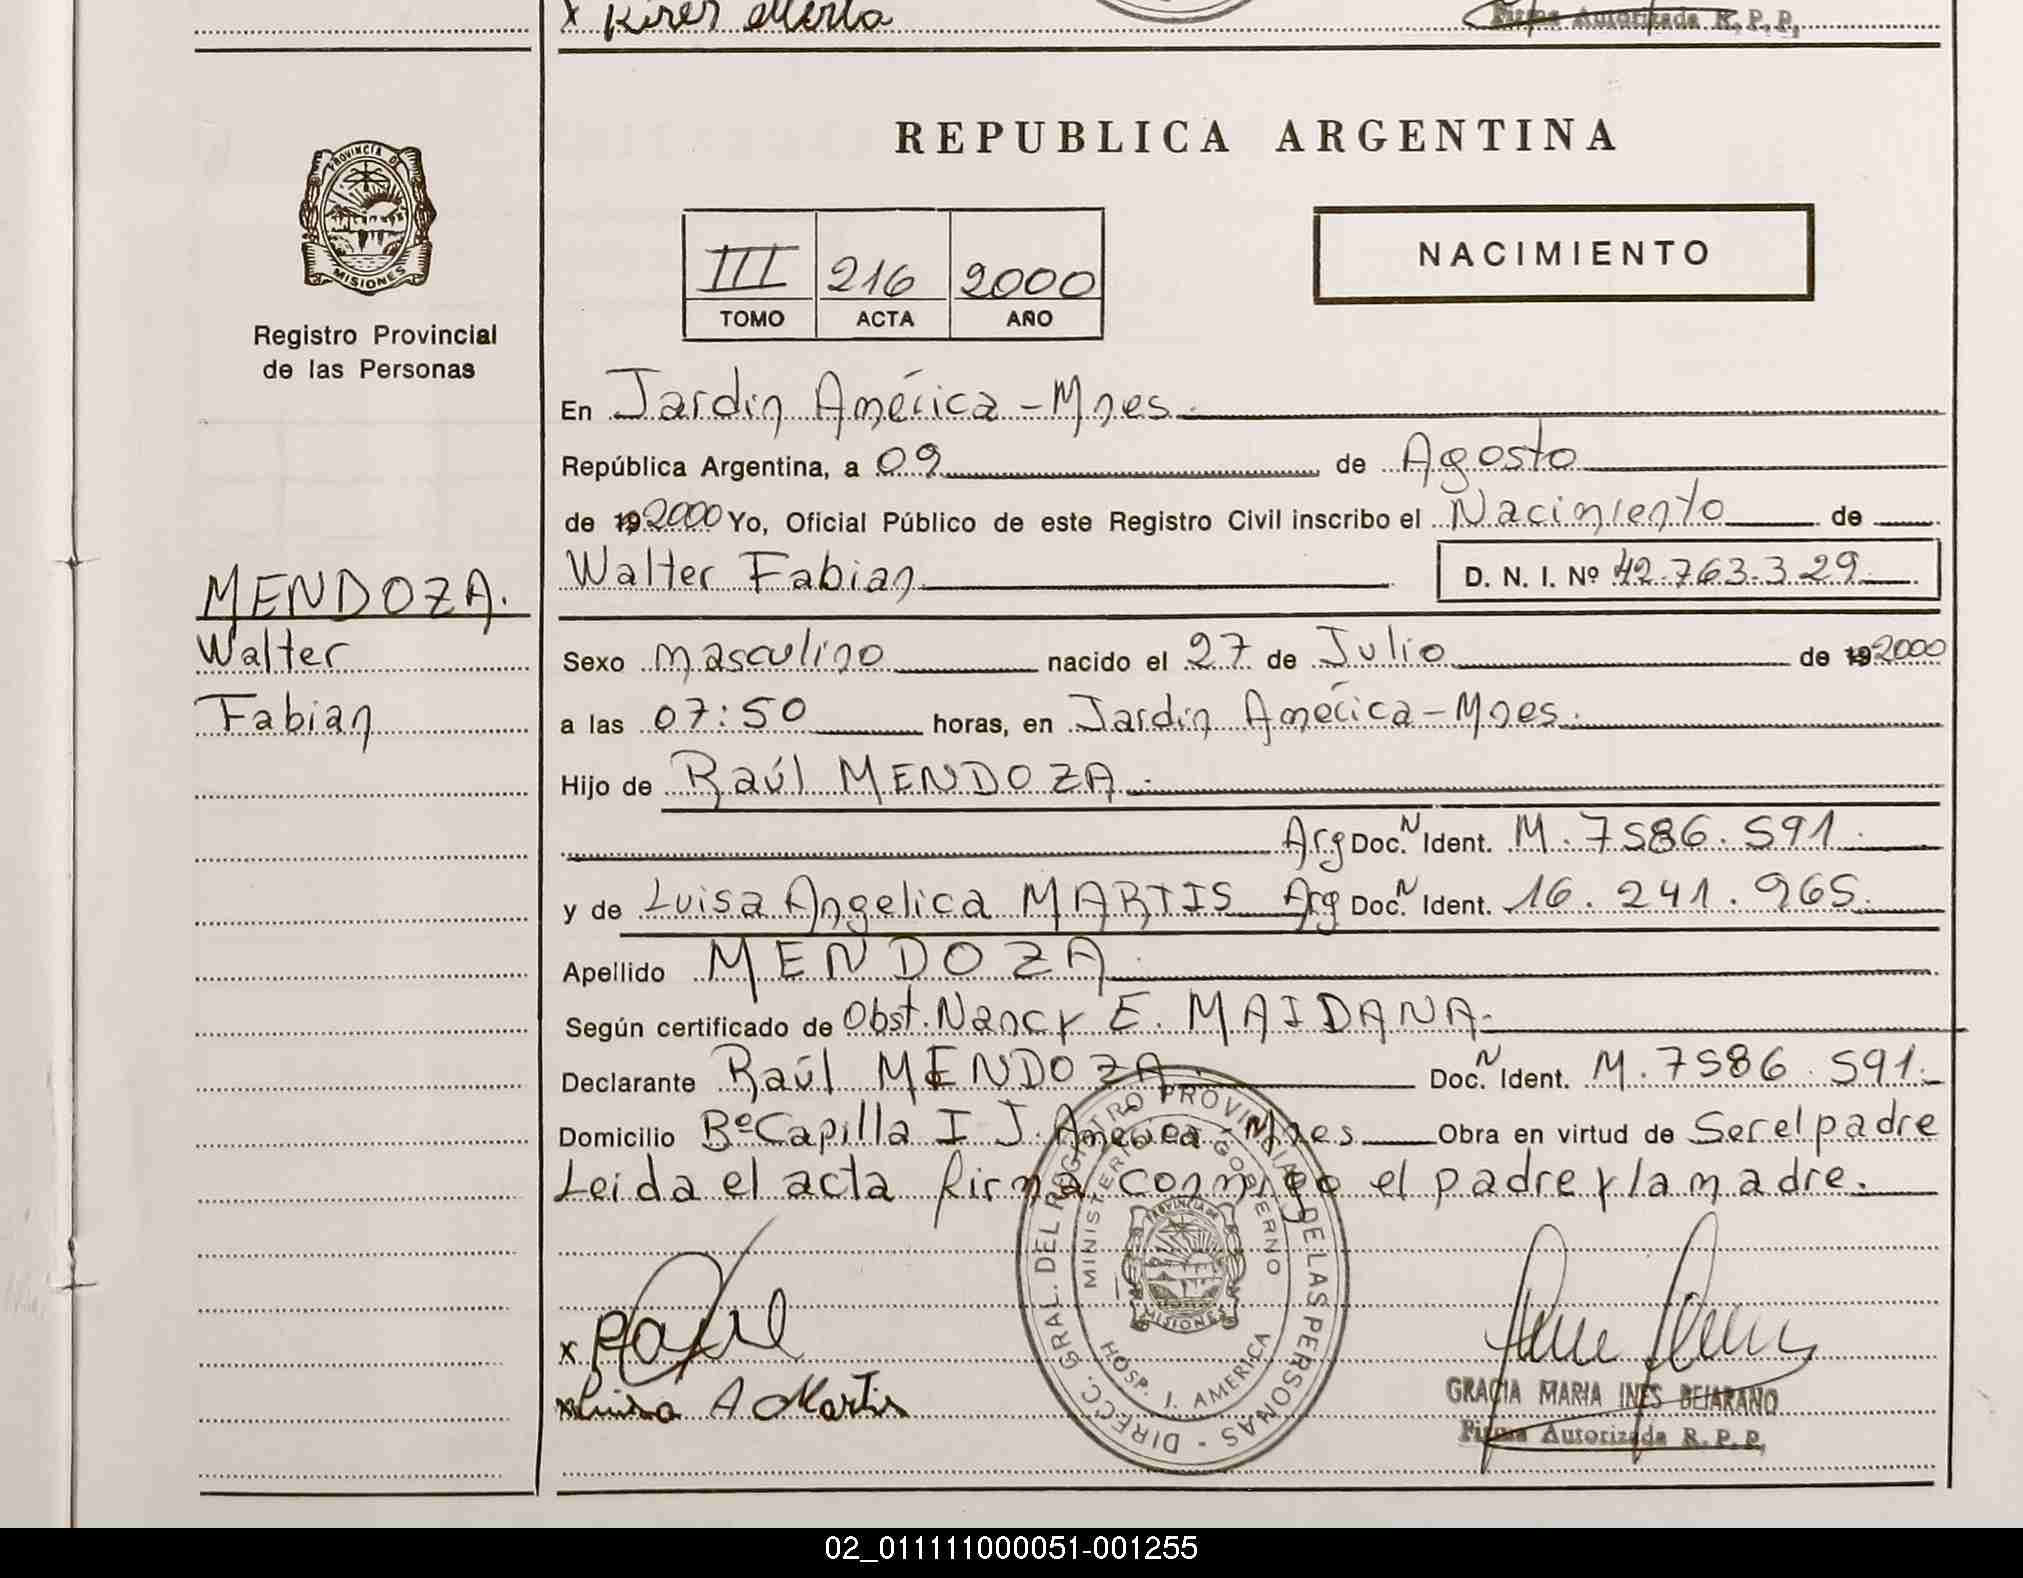 x Kirer Merla
Firma Autorizada R. P. P.
PROVINCIA DE
MISIONES
Registro Provincial
de las Personas
REPUBLICA ARGENTINA
III 216 2000
TOMO ACTA AÑO
NACIMIENTO
En Jardin América - Mnes.
República Argentina, a 09 de Agosto
de 19 2000 Yo, Oficial Público de este Registro Civil inscribo el Nacimiento de
Walter Fabian D. N. I. Nº 42.763.329
MENDOZA.
Walter
Fabian
Sexo masculino nacido el 27 de Julio de 19 2000
a las 07:50 horas, en Jardin América - Mnes.
Hijo de Raúl MENDOZA.
Arg Doc. N Ident. M. 7586.591.
y de Luisa Angelica MARTIS Arg Doc. N Ident. 16.241.965.
Apellido MENDOZA.
Según certificado de Obst. Nancy E. MAIDANA.
Declarante Raúl MENDOZA. Doc. N Ident. M. 7586.591.
Domicilio Bº Capilla I J. América - Mnes Obra en virtud de Ser el padre
Leida el acta firma conmigo el padre y la madre.
DIRECC. GRAL. DEL REGISTRO PROVINCIAL DE LAS PERSONAS -
MINISTERIO GOBIERNO
PROVINCIA DE
MISIONES
HOSP. J. AMERICA
x Raul
x Luisa A Martis
GRACIA MARIA INES BEJARANO
Firma Autorizada R. P. P.
02_011111000051-001255